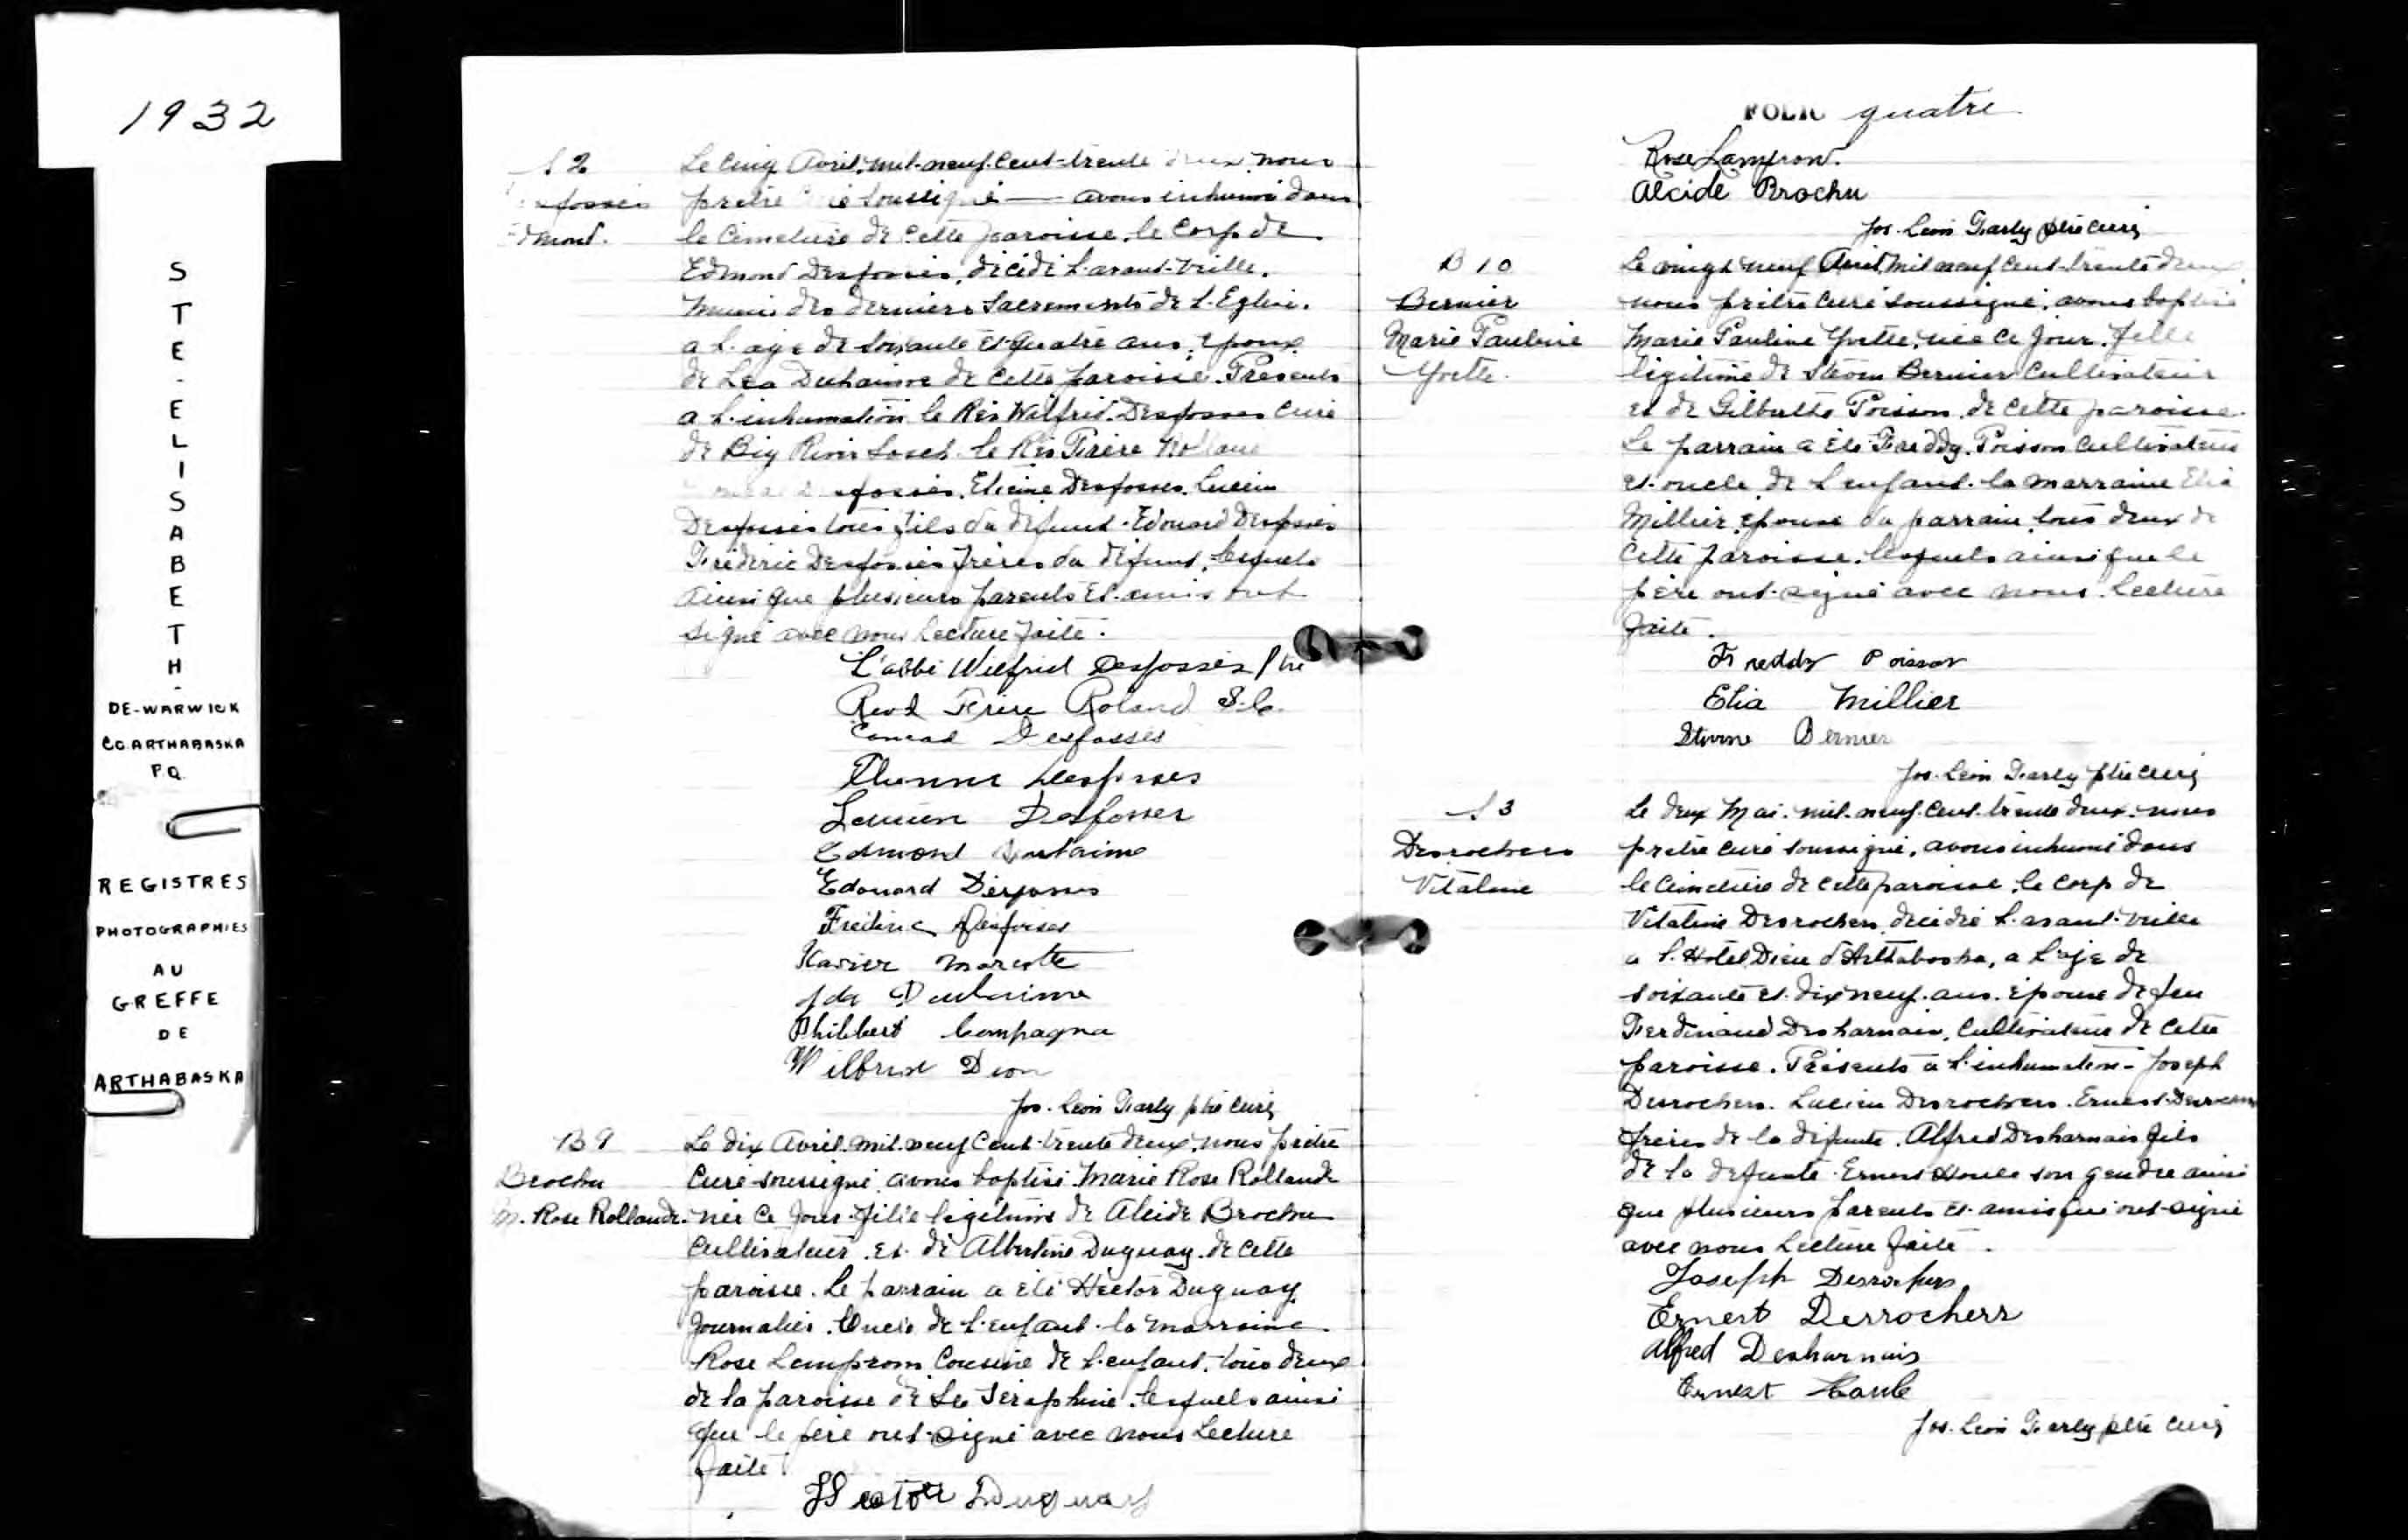 1932
STE-ELISABETH-
DE-WARWICK
CO. ARTHABASKA
P.Q.
REGISTRES
PHOTOGRAPHIES
AU
GREFFE
DE
ARTHABASKA
S 2
Edmond.
Le cinq Avril, mil-neuf-cent-trente deux, nous
prêtre curé soussigné — avons inhumé dans
le Cimetière de cette paroisse, le corp de
Edmond Desfossés, décédé l'avant-veille,
muni des derniers Sacrements de l'Eglise.
a l'age de soixante et quatre ans, epoux
de Léa Duhaime de cette paroisse. Présents
a l'inhumation le Rév Wilfrid Desfosses curé
de Big River Sask. le Rév Frère Rolland
Desfossés, Etienne Desfosses, Lucien
Desfossés tous fils du défunt. Edouard Desfossés
Fréderic Desfossés frères du défunt, lesquels
ainsi que plusieurs parents et amis ont
signé avec nous Lecture faite.
L'abbé Wilfrid Desfossés ptre
Revd Frère Roland S.C.
Conrad Desfossés
Etienne Desfosses
Lucien Desfosses
Edmond Duhaime
Edouard Desfosses
Frédéric Desfosses
Xavier Marcotte
Duhaime
Philibert Campagna
Wilbrod Dion
Jos. Léon Farly ptre curé
B 9
Brochu
M. Rose Rollande.
Le dix Avril, mil neuf cent-trente deux, nous prêtre
curé soussigné, avons baptisé Marie Rose Rollande
née ce jour. fille légitime de Alcide Brochu
Cultivateur et de Albertine Duguay de cette
paroisse. Le parrain a été Hector Duguay
Journalier. Oncle de l'enfant. la marraine
Rose Lampron Cousine de l'enfant, tous deux
de la paroisse de Ste Séraphine. lesquels ainsi
que le père ont signé avec nous Lecture
faite.
Hector Duguay
FOLIO quatre
Rose Lampron.
Alcide Brochu
Jos. Léon Farly ptre curé
B 10
Bernier
Marie Pauline
Yvette.
Le vingt neuf Avril, mil neuf cent-trente deux
nous prêtre curé soussigné, avons baptisé
Marie Pauline Yvette, née ce jour. fille
légitime de Bernier Cultivateur
et de Gilberte Poisson, de cette paroisse.
Le parrain a été Freddy Poisson Cultivateur
et oncle de l'enfant. la marraine Elia
Millier, épouse du parrain, tous deux de
cette paroisse. lesquels ainsi que le
père ont signé avec nous. Lecture
faite.
Freddy Poisson
Elia Millier
Bernier
Jos. Léon Farly ptre curé
S 3
Desrochers
Vitaline
Le deux Mai, mil-neuf-cent-trente deux. nous
prêtre curé soussigné, avons inhumé dans
le Cimetière de cette paroisse, le corp de
Vitaline Desrochers, décédée l'avant-veille
a l'Hotel Dieu d'Arthabaska, a l'age de
soixante et dix neuf ans. épouse de feu
Ferdinand Desharnais, Cultivateur de cette
paroisse. Présents a l'inhumation - Joseph
Desrochers. Lucien Desrochers. Ernest Desrochers
frères de la défunte. Alfred Desharnais fils
de la défunte. Ernest Houle son gendre ainsi
que plusieurs parents et amis qui ont signé
avec nous Lecture faite.
Joseph Desrochers
Ernest Desrochers
Alfred Desharnais
Ernest Houle
Jos. Léon Farly ptre curé